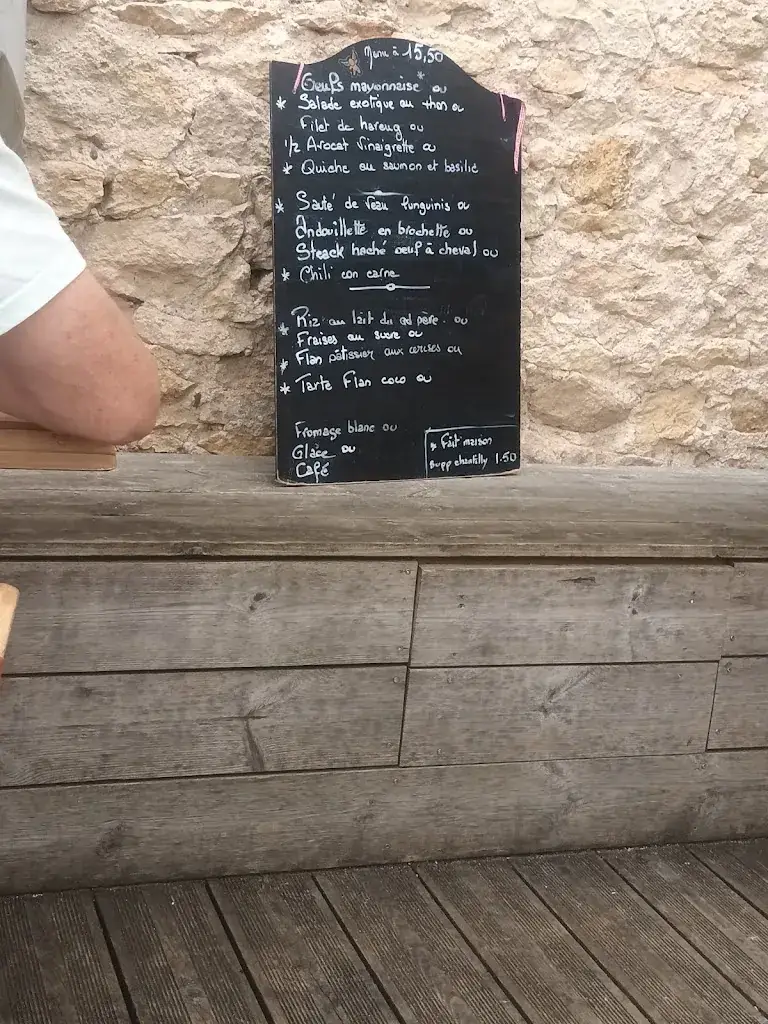 Menu à 15,50
Oeufs mayonnaise * ou
* Salade exotique au thon ou
Filet de hareng ou
1/2 Avocat Vinaigrette ou
* Quiche au saumon et basilic
* Sauté de Veau linguinis ou
Andouillette en brochette ou
Steack haché oeuf à cheval ou
* Chili con carne
* Riz au lait du gd père. ou
Fraises au sucre ou
* Flan pâtissier aux cerises ou
* Tarte Flan coco ou
Fromage blanc ou
Glace ou
Café
* Fait maison
supp chantilly 1.50